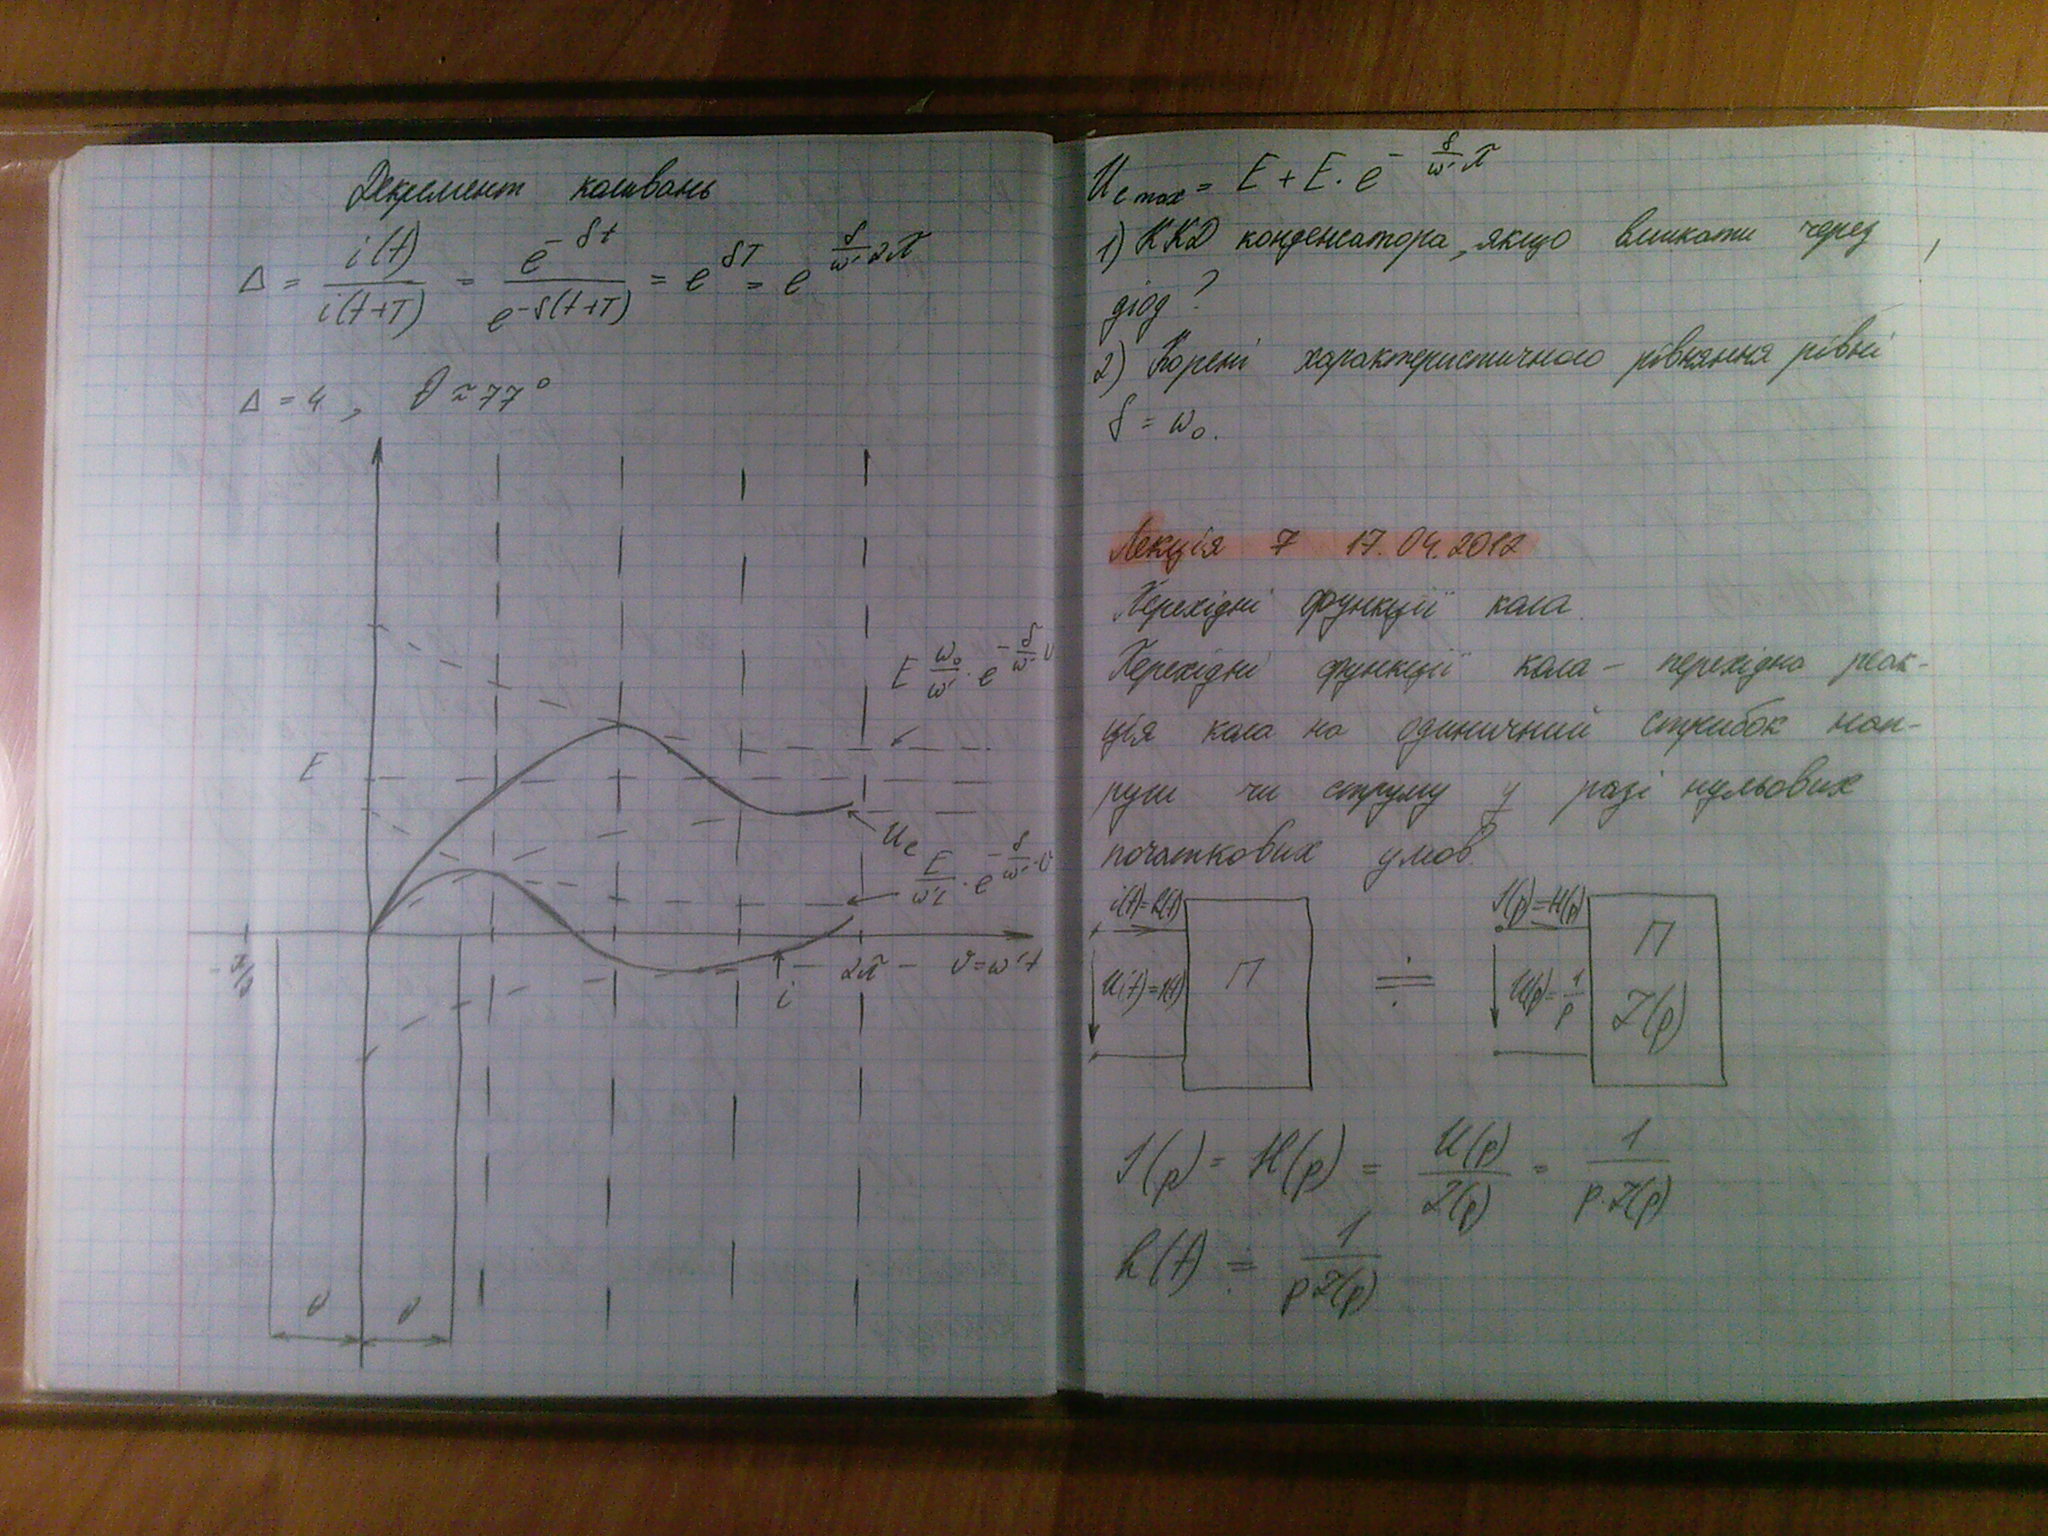 Декремент коливань
Δ = i(t) / i(t+T) = e^{-δt} / e^{-δ(t+T)} = e^{δT} = e^{δ/ω' 2π}
Δ = 4 , θ ≈ 77°
E ω₀/ω' · e^{-δ/ω' ϑ}
E
u_c
E/ω'L · e^{-δ/ω' · ϑ}
2π
ϑ = ω't
i
θ θ
U_{c max} = E + E · e^{- δ/ω' π}
1) ККД конденсатора, якщо вмикати через
діод ?
2) Корені характеристичного рівняння рівні
δ = ω₀.
Лекція 7 17.04.2012
Перехідні функції кола.
Перехідні функції кола – перехідна реак-
ція кола на одиничний стрибок нап-
руги чи струму у разі нульових
початкових умов.
i(t)=h(t)
U(t)=1(t)
П
≑
I(p)=H(p)
U(p)=1/p
П
Z(p)
I(p) = H(p) = U(p) / Z(p) = 1 / p·Z(p)
h(t) ≑ 1 / pZ(p)